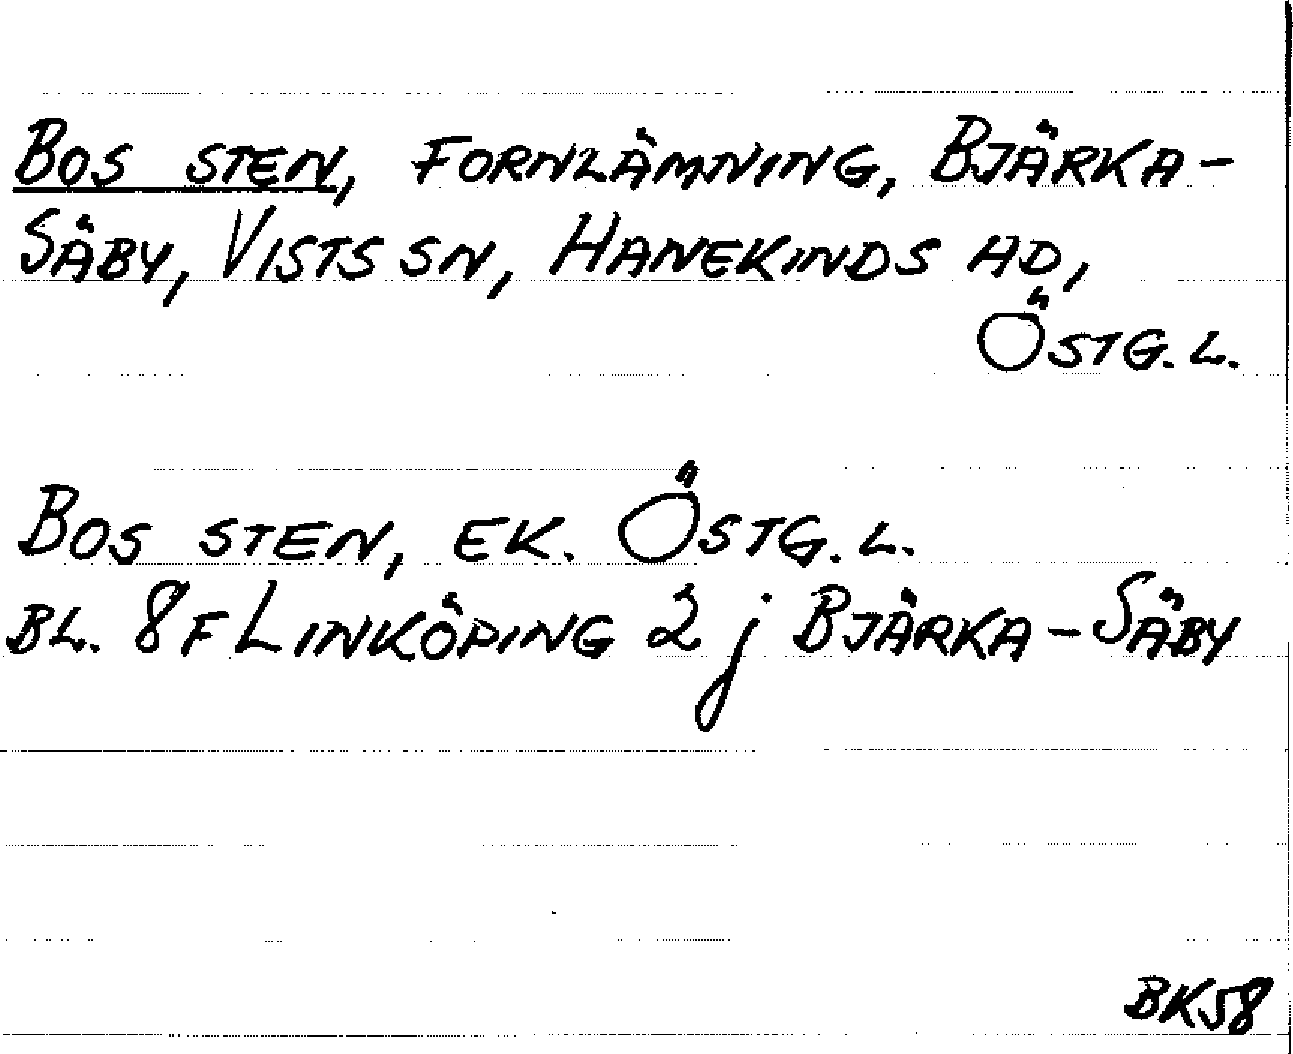 Bos sten, fornlämning, Bjärka-
Säby, Vists sn, Hanekinds hd,
Östg. l.
Bos sten, ek. Östg. l.
bl. 8F Linköping 2j Bjärka-Säby
BK58